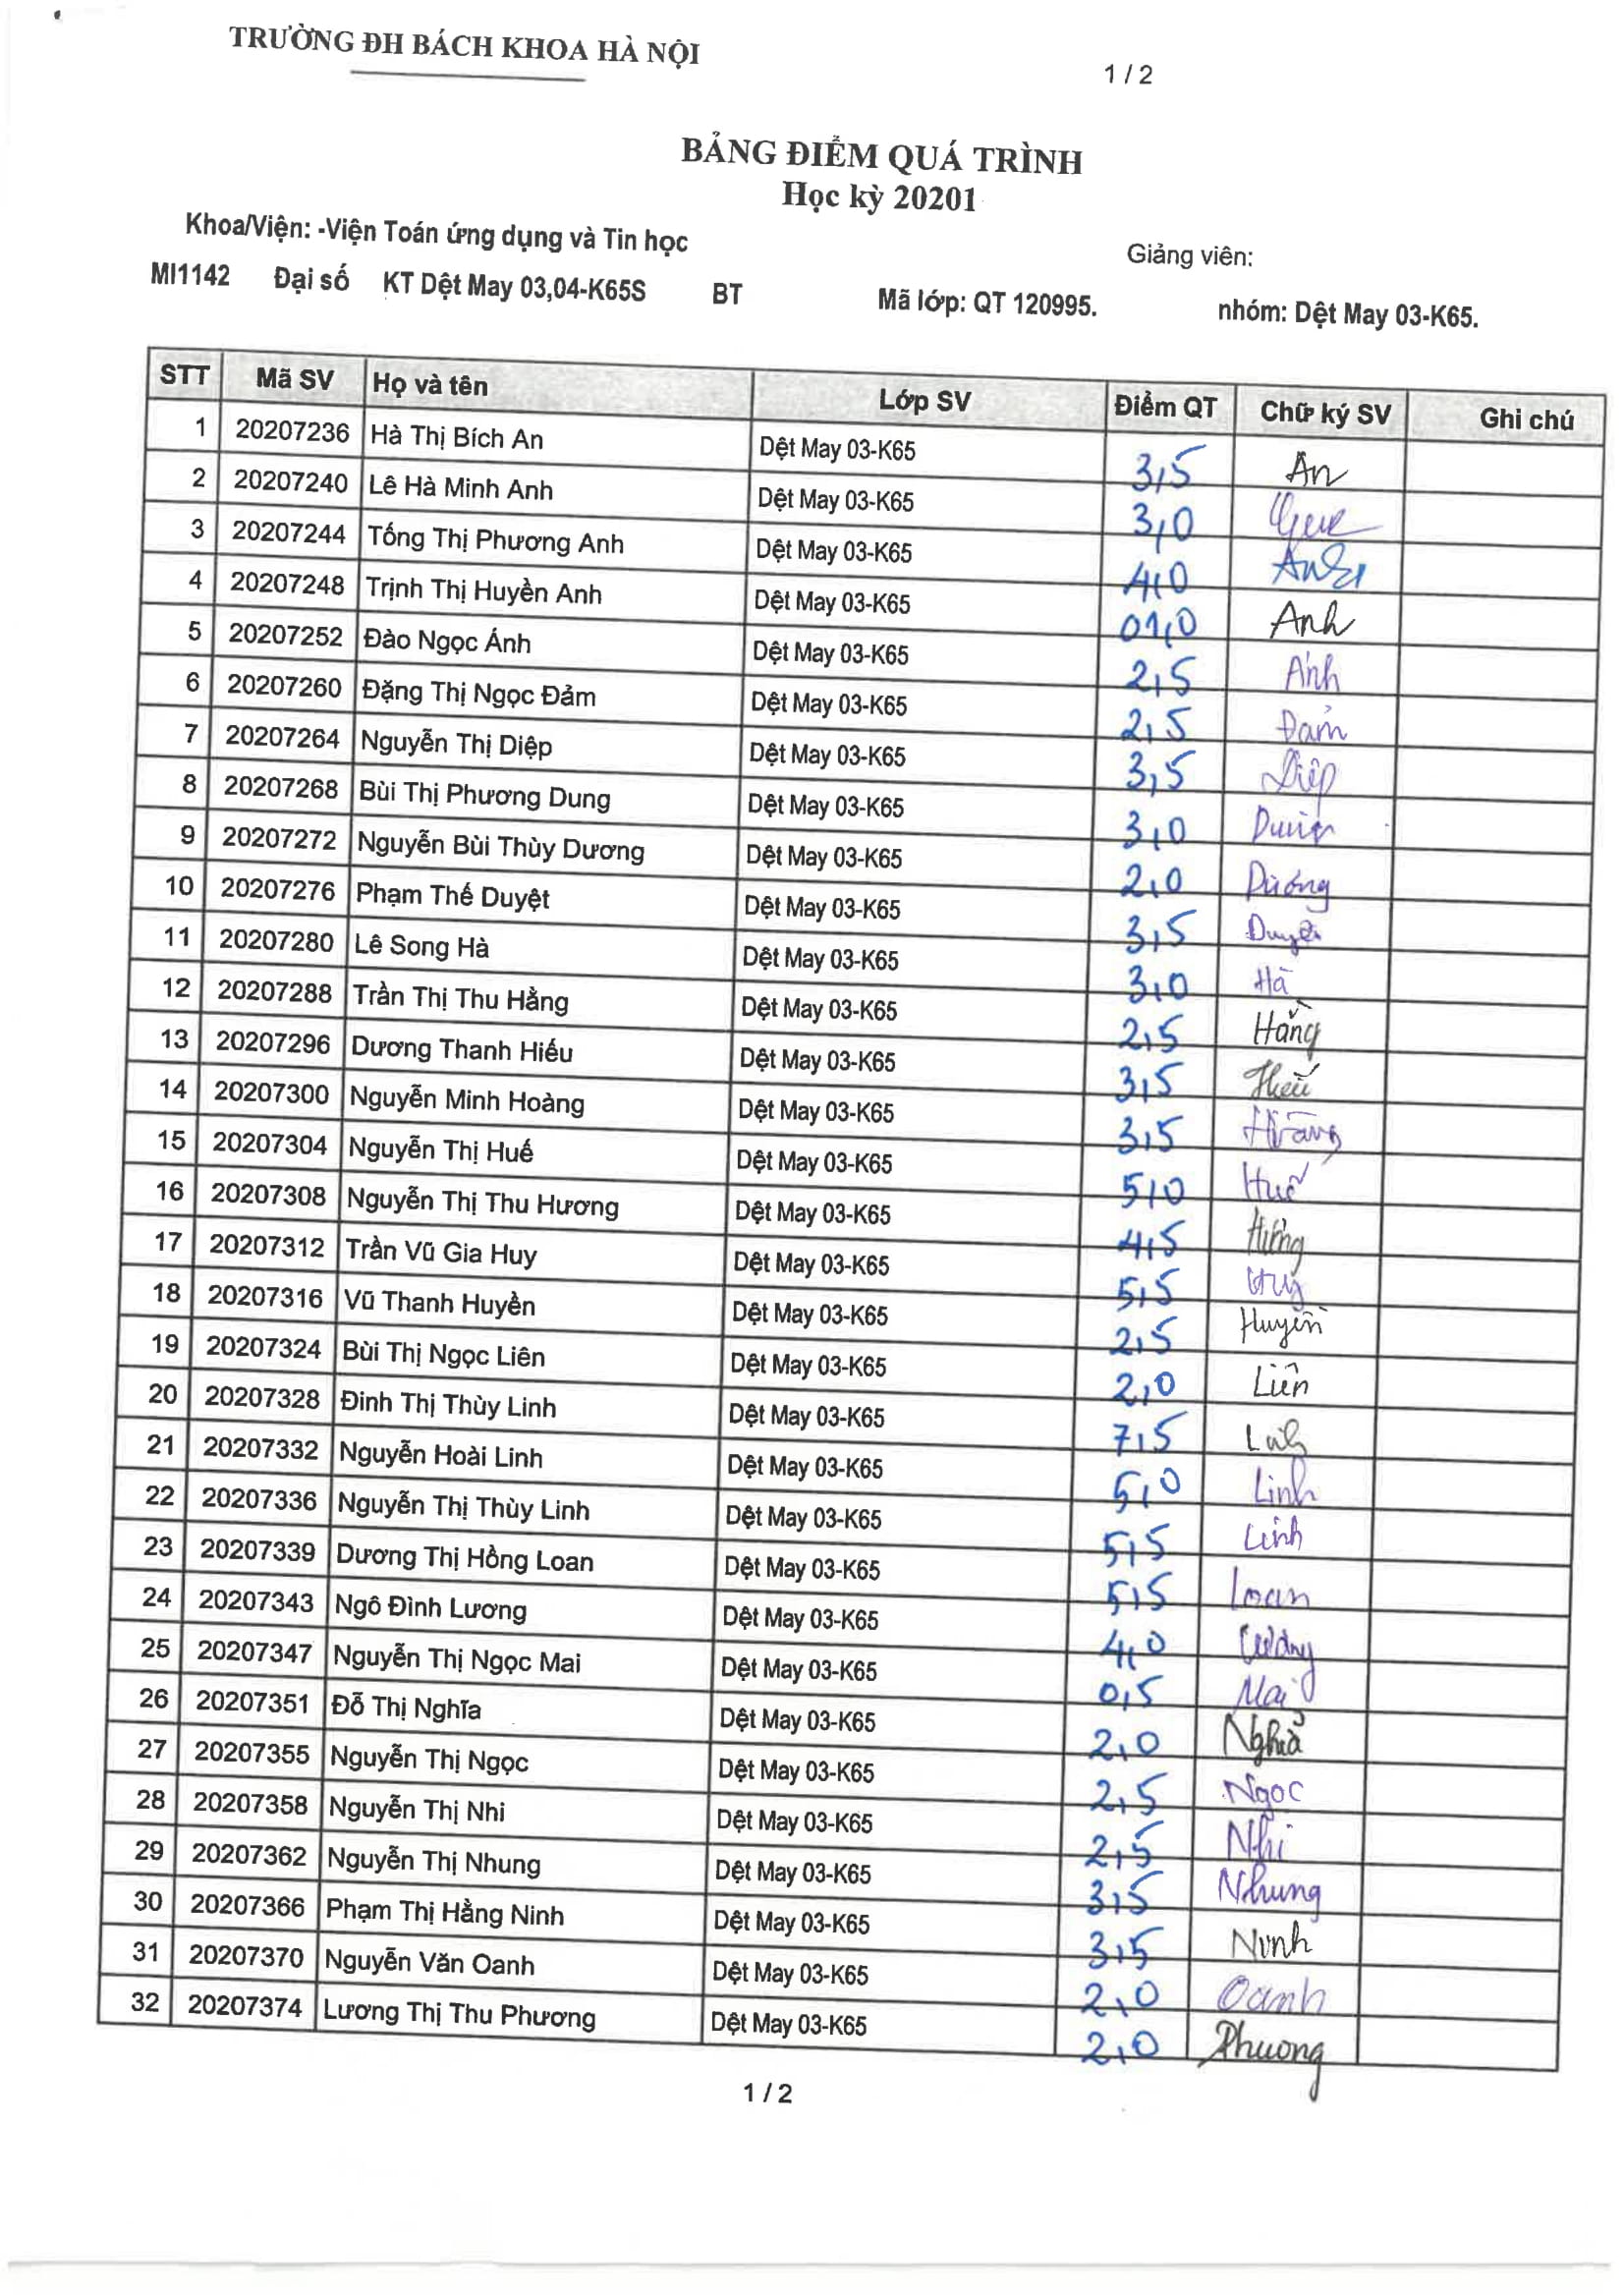 TRƯỜNG ĐH BÁCH KHOA HÀ NỘI
1 / 2
BẢNG ĐIỂM QUÁ TRÌNH
Học kỳ 20201
Khoa/Viện: -Viện Toán ứng dụng và Tin học
Giảng viên:
MI1142 Đại số KT Dệt May 03,04-K65S BT Mã lớp: QT 120995. nhóm: Dệt May 03-K65.
STT Mã SV Họ và tên Lớp SV Điểm QT Chữ ký SV Ghi chú
1 20207236 Hà Thị Bích An Dệt May 03-K65 3,5 An
2 20207240 Lê Hà Minh Anh Dệt May 03-K65 3,0
3 20207244 Tống Thị Phương Anh Dệt May 03-K65 4,0 Anh
4 20207248 Trịnh Thị Huyền Anh Dệt May 03-K65 01,0 Anh
5 20207252 Đào Ngọc Ánh Dệt May 03-K65 2,5 Ánh
6 20207260 Đặng Thị Ngọc Đảm Dệt May 03-K65 2,5 Đảm
7 20207264 Nguyễn Thị Diệp Dệt May 03-K65 3,5 Diệp
8 20207268 Bùi Thị Phương Dung Dệt May 03-K65 3,0 Dung
9 20207272 Nguyễn Bùi Thùy Dương Dệt May 03-K65 2,0 Dương
10 20207276 Phạm Thế Duyệt Dệt May 03-K65 3,5 Duyệt
11 20207280 Lê Song Hà Dệt May 03-K65 3,0 Hà
12 20207288 Trần Thị Thu Hằng Dệt May 03-K65 2,5 Hằng
13 20207296 Dương Thanh Hiếu Dệt May 03-K65 3,5 Hiếu
14 20207300 Nguyễn Minh Hoàng Dệt May 03-K65 3,5 Hoàng
15 20207304 Nguyễn Thị Huế Dệt May 03-K65 5,0 Huế
16 20207308 Nguyễn Thị Thu Hương Dệt May 03-K65 4,5 Hương
17 20207312 Trần Vũ Gia Huy Dệt May 03-K65 5,5 Huy
18 20207316 Vũ Thanh Huyền Dệt May 03-K65 2,5 Huyền
19 20207324 Bùi Thị Ngọc Liên Dệt May 03-K65 2,0 Liên
20 20207328 Đinh Thị Thùy Linh Dệt May 03-K65 7,5 Linh
21 20207332 Nguyễn Hoài Linh Dệt May 03-K65 5,0 Linh
22 20207336 Nguyễn Thị Thùy Linh Dệt May 03-K65 5,5 Linh
23 20207339 Dương Thị Hồng Loan Dệt May 03-K65 5,5 Loan
24 20207343 Ngô Đình Lương Dệt May 03-K65 4,0 Lương
25 20207347 Nguyễn Thị Ngọc Mai Dệt May 03-K65 0,5 Mai
26 20207351 Đỗ Thị Nghĩa Dệt May 03-K65 2,0 Nghĩa
27 20207355 Nguyễn Thị Ngọc Dệt May 03-K65 2,5 Ngọc
28 20207358 Nguyễn Thị Nhi Dệt May 03-K65 2,5 Nhi
29 20207362 Nguyễn Thị Nhung Dệt May 03-K65 3,5 Nhung
30 20207366 Phạm Thị Hằng Ninh Dệt May 03-K65 3,5 Ninh
31 20207370 Nguyễn Văn Oanh Dệt May 03-K65 2,0 Oanh
32 20207374 Lương Thị Thu Phương Dệt May 03-K65 2,0 Phuong
1 / 2